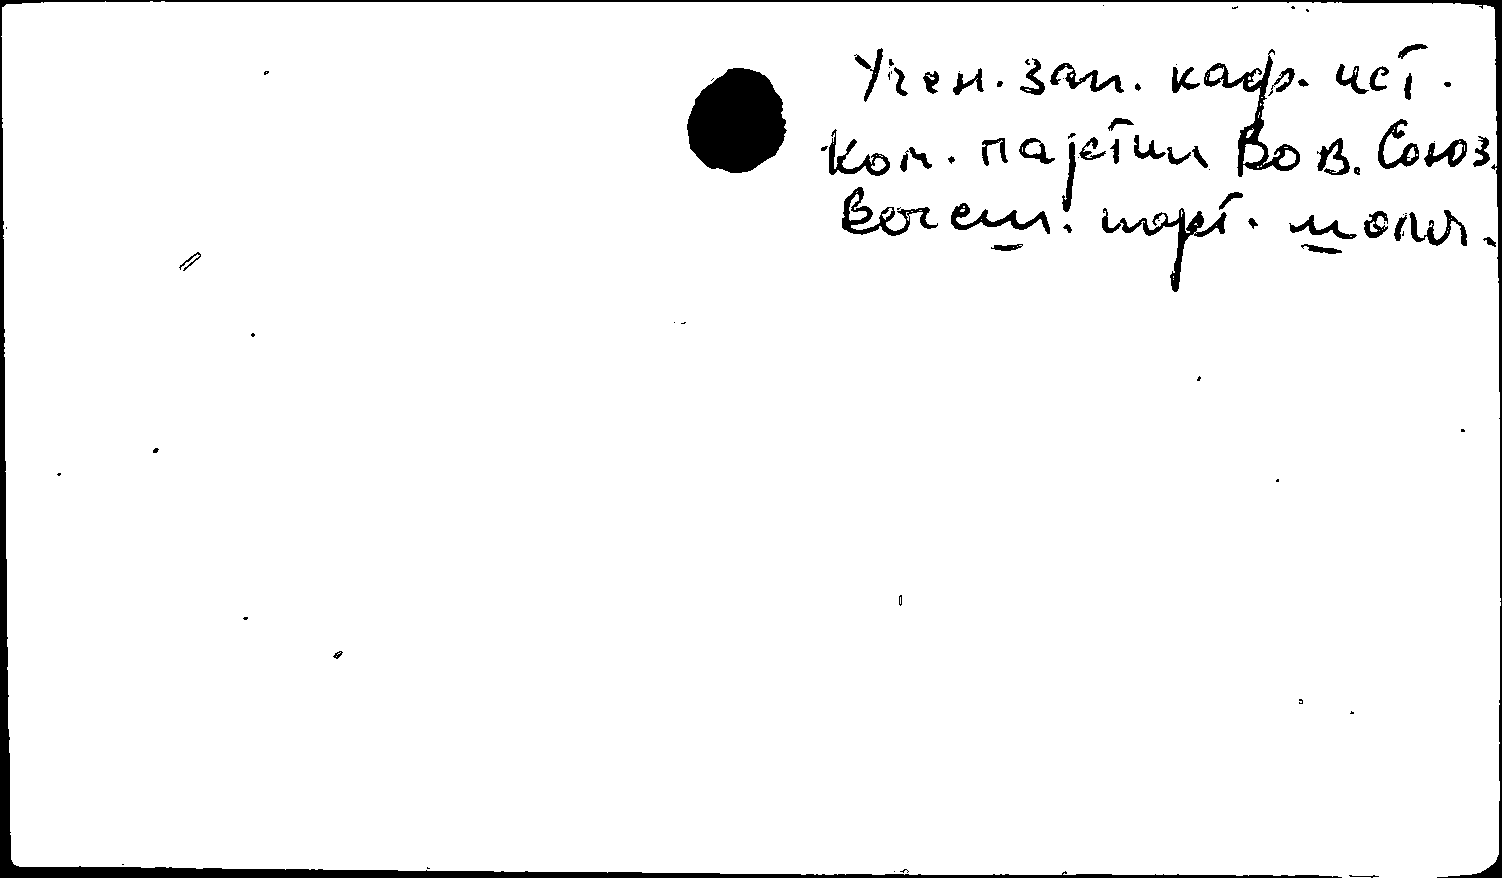 Учен. зап. каф. ист.
Ком. партии Сов. Союз.
Высш. парт. школы.